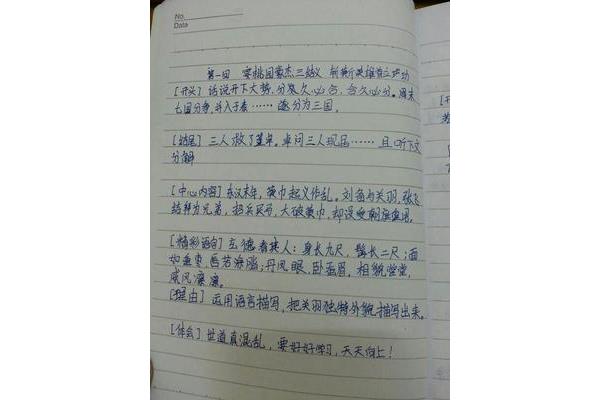 No.
Data
第一回 宴桃园豪杰三结义 斩黄巾英雄首立功
[开头] 话说天下大势,分久必合,合久必分。周末
七国分争,并入于秦……遂分为三国。
[结尾] 三人救了董卓。卓问三人现居……且听下文
分解
[中心内容] 东汉末年,黄巾起义作乱。刘备与关羽、张飞
结拜为兄弟,招兵买马,大破黄巾,却没受朝廷重用。
[精彩语句] 玄德看其人:身长九尺,髯长二尺;面
如重枣,唇若涂脂;丹凤眼,卧蚕眉,相貌堂堂,
威风凛凛。
[理由] 运用语言描写,把关羽独特外貌描写出来。
[体会] 世道真混乱,要好好学习,天天向上!